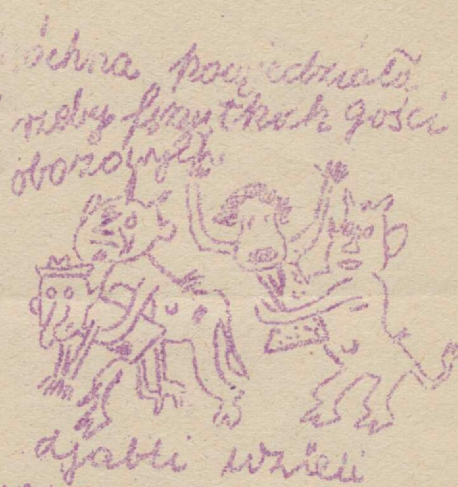 powiedziała
żeby fszytkich gości
obozowych
djabli wzieli